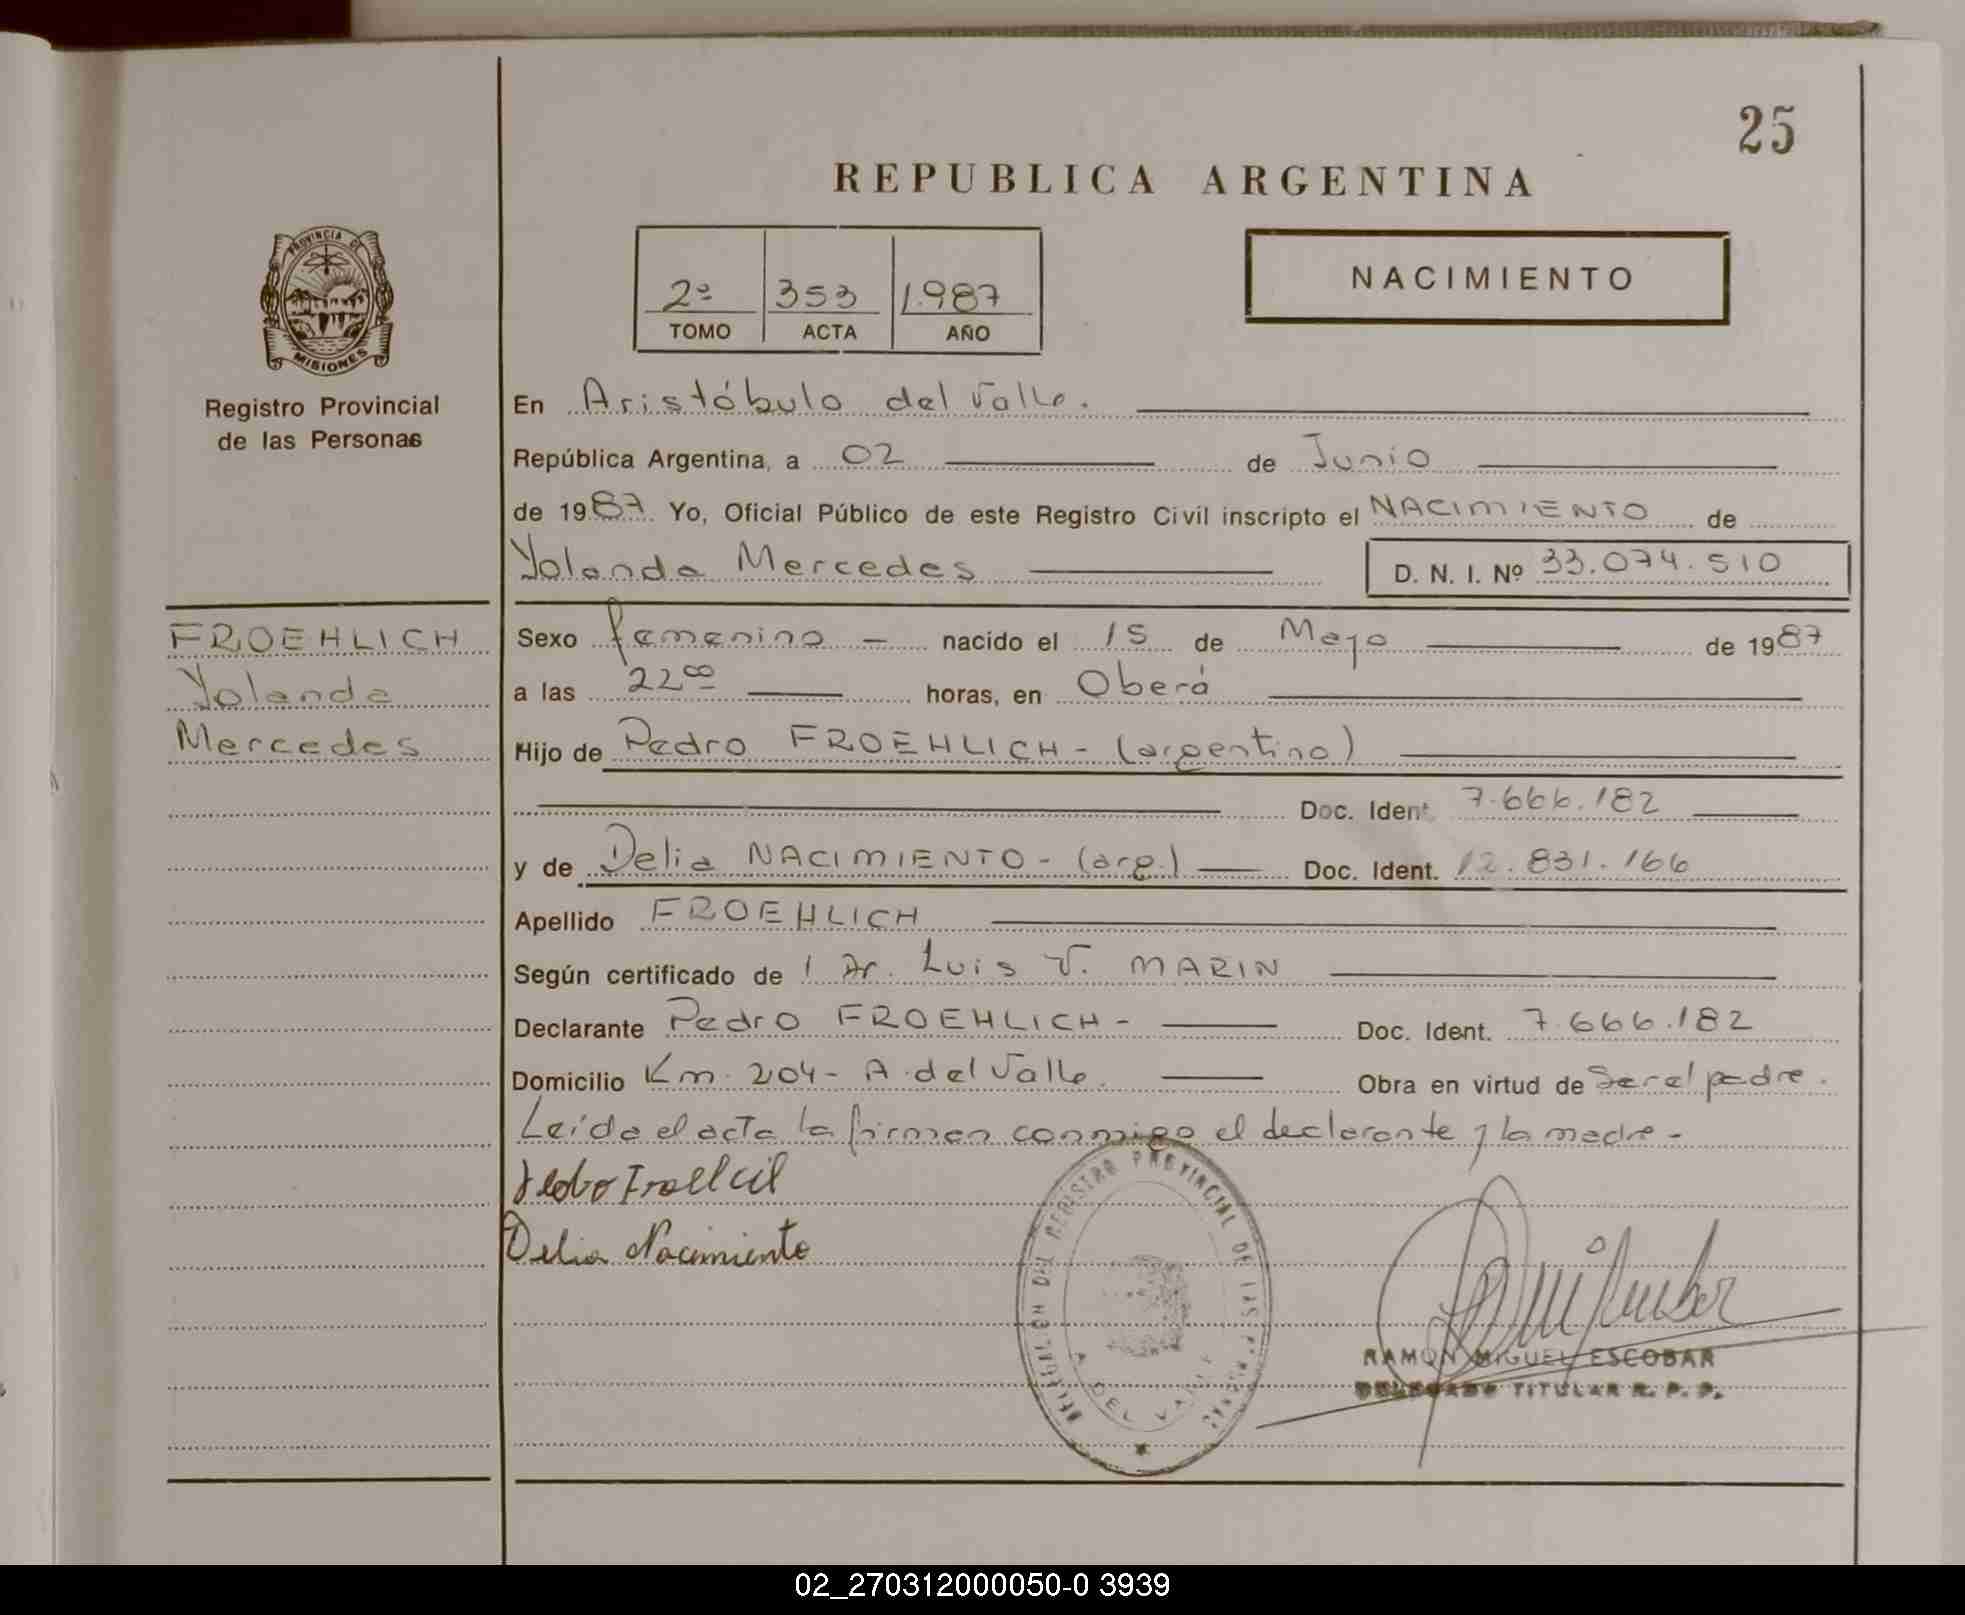 25
REPUBLICA ARGENTINA
PROVINCIA DE
MISIONES
Registro Provincial
de las Personas
2º 353 1.987
TOMO ACTA AÑO
NACIMIENTO
En Aristóbulo del Valle.
República Argentina, a 02 de Junio
de 1987. Yo, Oficial Público de este Registro Civil inscripto el NACIMIENTO de
Yolanda Mercedes D. N. I. Nº 33.074.510
FROEHLICH
Yolanda
Mercedes
Sexo femenino - nacido el 15 de Mayo de 1987
a las 22ºº horas, en Oberá
Hijo de Pedro FROEHLICH - (argentino)
Doc. Ident. 7.666.182
y de Delia NACIMIENTO - (arg.) Doc. Ident. 12.831.166
Apellido FROEHLICH
Según certificado de l Dr. Luis V. MARIN
Declarante Pedro FROEHLICH - Doc. Ident. 7.666.182
Domicilio Km. 204 - A. del Valle. Obra en virtud de Ser el padre.
Leída el acta la firman conmigo el declarante y la madre -
Delia Nacimiento
DELEGACION DEL REGISTRO PROVINCIAL DE LAS PERSONAS
A. DEL VALLE
RAMON MIGUEL ESCOBAR
DELEGADO TITULAR R. P. P.
02_270312000050-0 3939